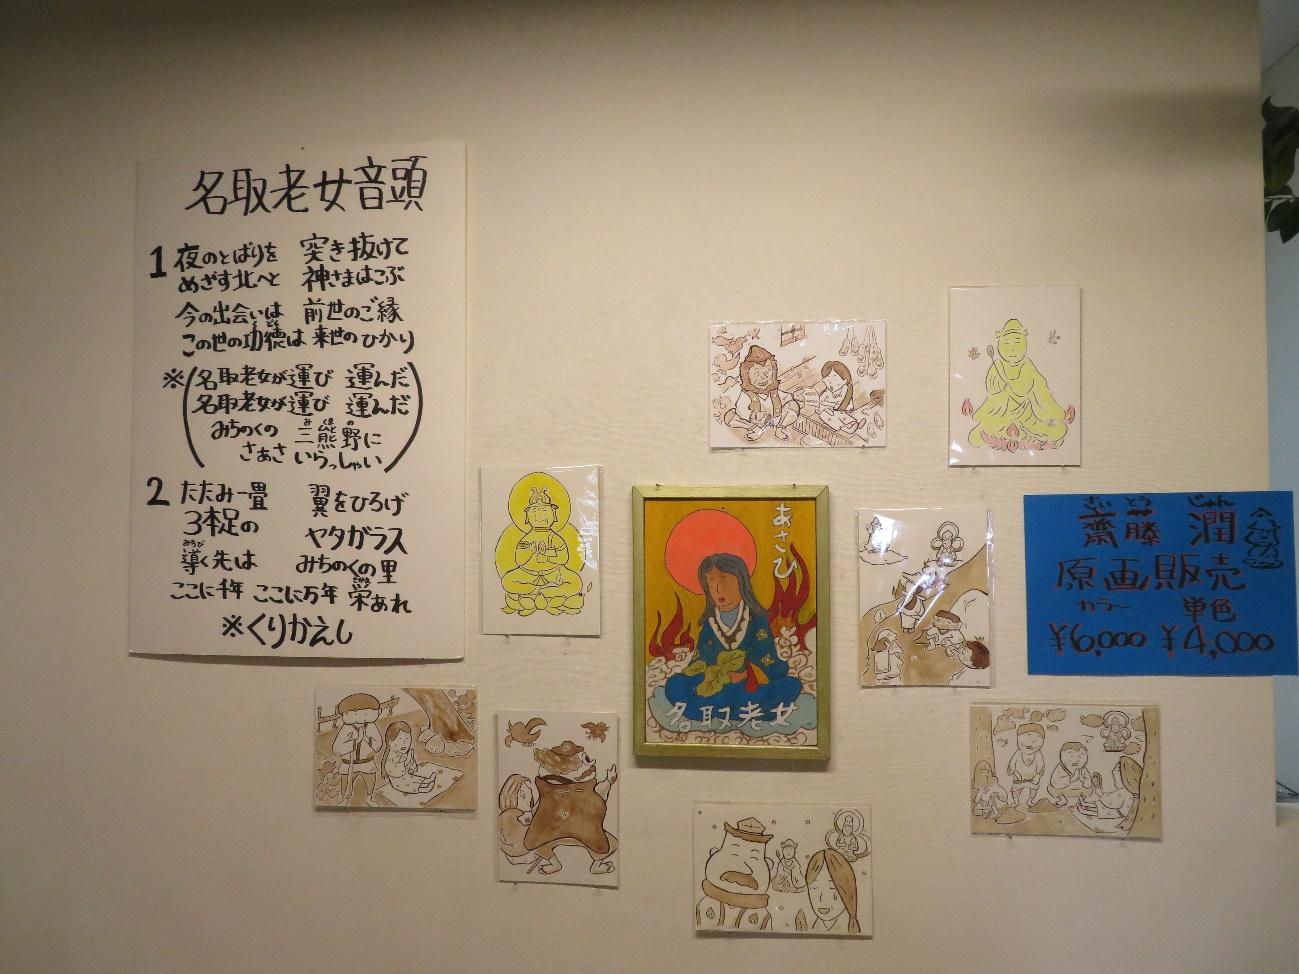 名取老女音頭
1 夜のとばりを 突き抜けて
めざす北へと 神さまはこぶ
今の出会いは 前世のご縁
くどく
この世の功徳は 来世のひかり
※(名取老女が運び 運んだ
名取老女が運び 運んだ
み くま の
みちのくの 三熊野に
さあさ いらっしゃい)
2 たたみ一畳 翼をひろげ
3本足の ヤタガラス
みちび
導く先は みちのくの里
さかえ
ここに千年 ここに万年 栄あれ
※くりかえし
あさひ
名取老女
さいとう じゅん
齋藤 潤
原画販売
カラー 単色
¥6,000 ¥4,000